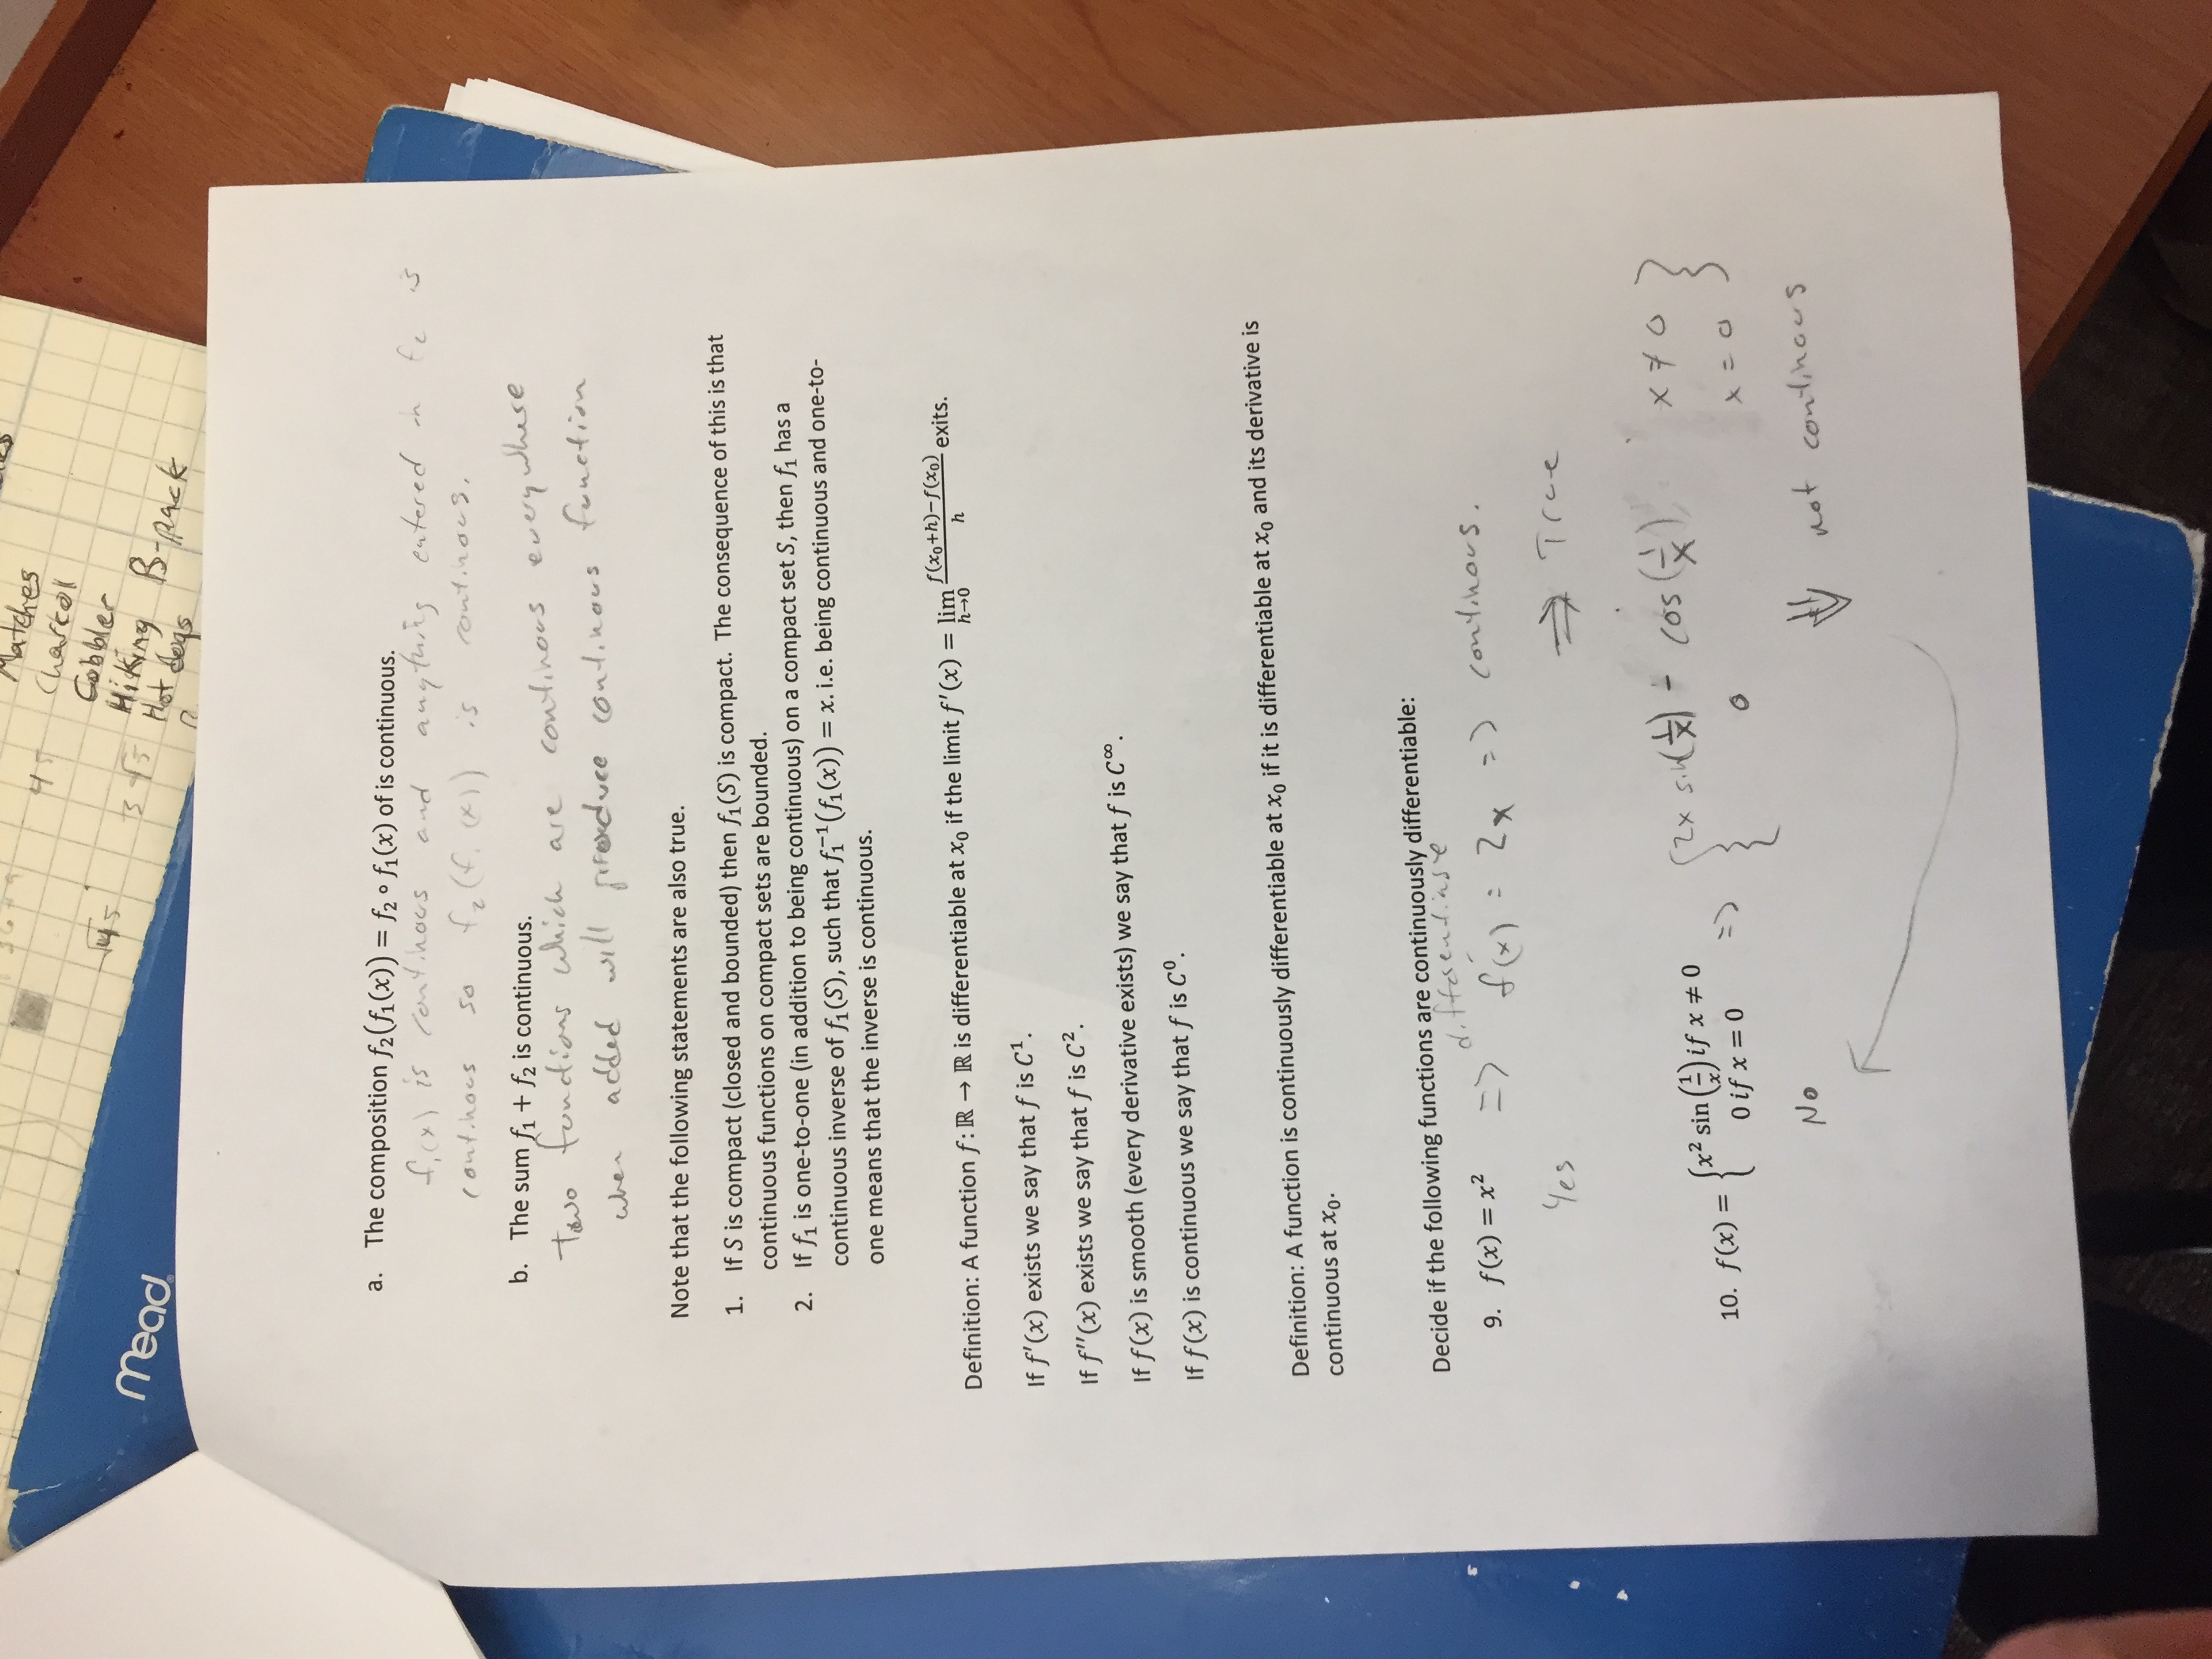 Matches
45 Charcol
Cobbler
√45
Hiking B-pack
3√5
Hot dogs
Mead
a. The composition f₂(f₁(x)) = f₂ ∘ f₁(x) of is continuous.
f₁(x) is continous and anything entered in f₂ is
continous so f₂(f₁(x)) is continous.
b. The sum f₁ + f₂ is continuous.
Two functions which are continous everywhere
when added will produce continous function
Note that the following statements are also true.
1. If S is compact (closed and bounded) then f₁(S) is compact. The consequence of this is that
continuous functions on compact sets are bounded.
2. If f₁ is one-to-one (in addition to being continuous) on a compact set S, then f₁ has a
continuous inverse of f₁(S), such that f₁⁻¹(f₁(x)) = x. i.e. being continuous and one-to-
one means that the inverse is continuous.
Definition: A function f: ℝ → ℝ is differentiable at x₀ if the limit f′(x) = lim h→0 f(x₀+h)−f(x₀) / h exits.
If f′(x) exists we say that f is C¹.
If f″(x) exists we say that f is C².
If f(x) is smooth (every derivative exists) we say that f is C^∞.
If f(x) is continuous we say that f is C⁰.
Definition: A function is continuously differentiable at x₀ if it is differentiable at x₀ and its derivative is
continuous at x₀.
Decide if the following functions are continuously differentiable:
differentiate
9. f(x) = x² => f′(x) = 2x => continous.
Yes ⇒ True
10. f(x) = { x² sin(1/x) if x ≠ 0 => { 2x sin(1/x) - cos(1/x) x ≠ 0 }
0 if x = 0 0 x = 0
No ⇓ not continous